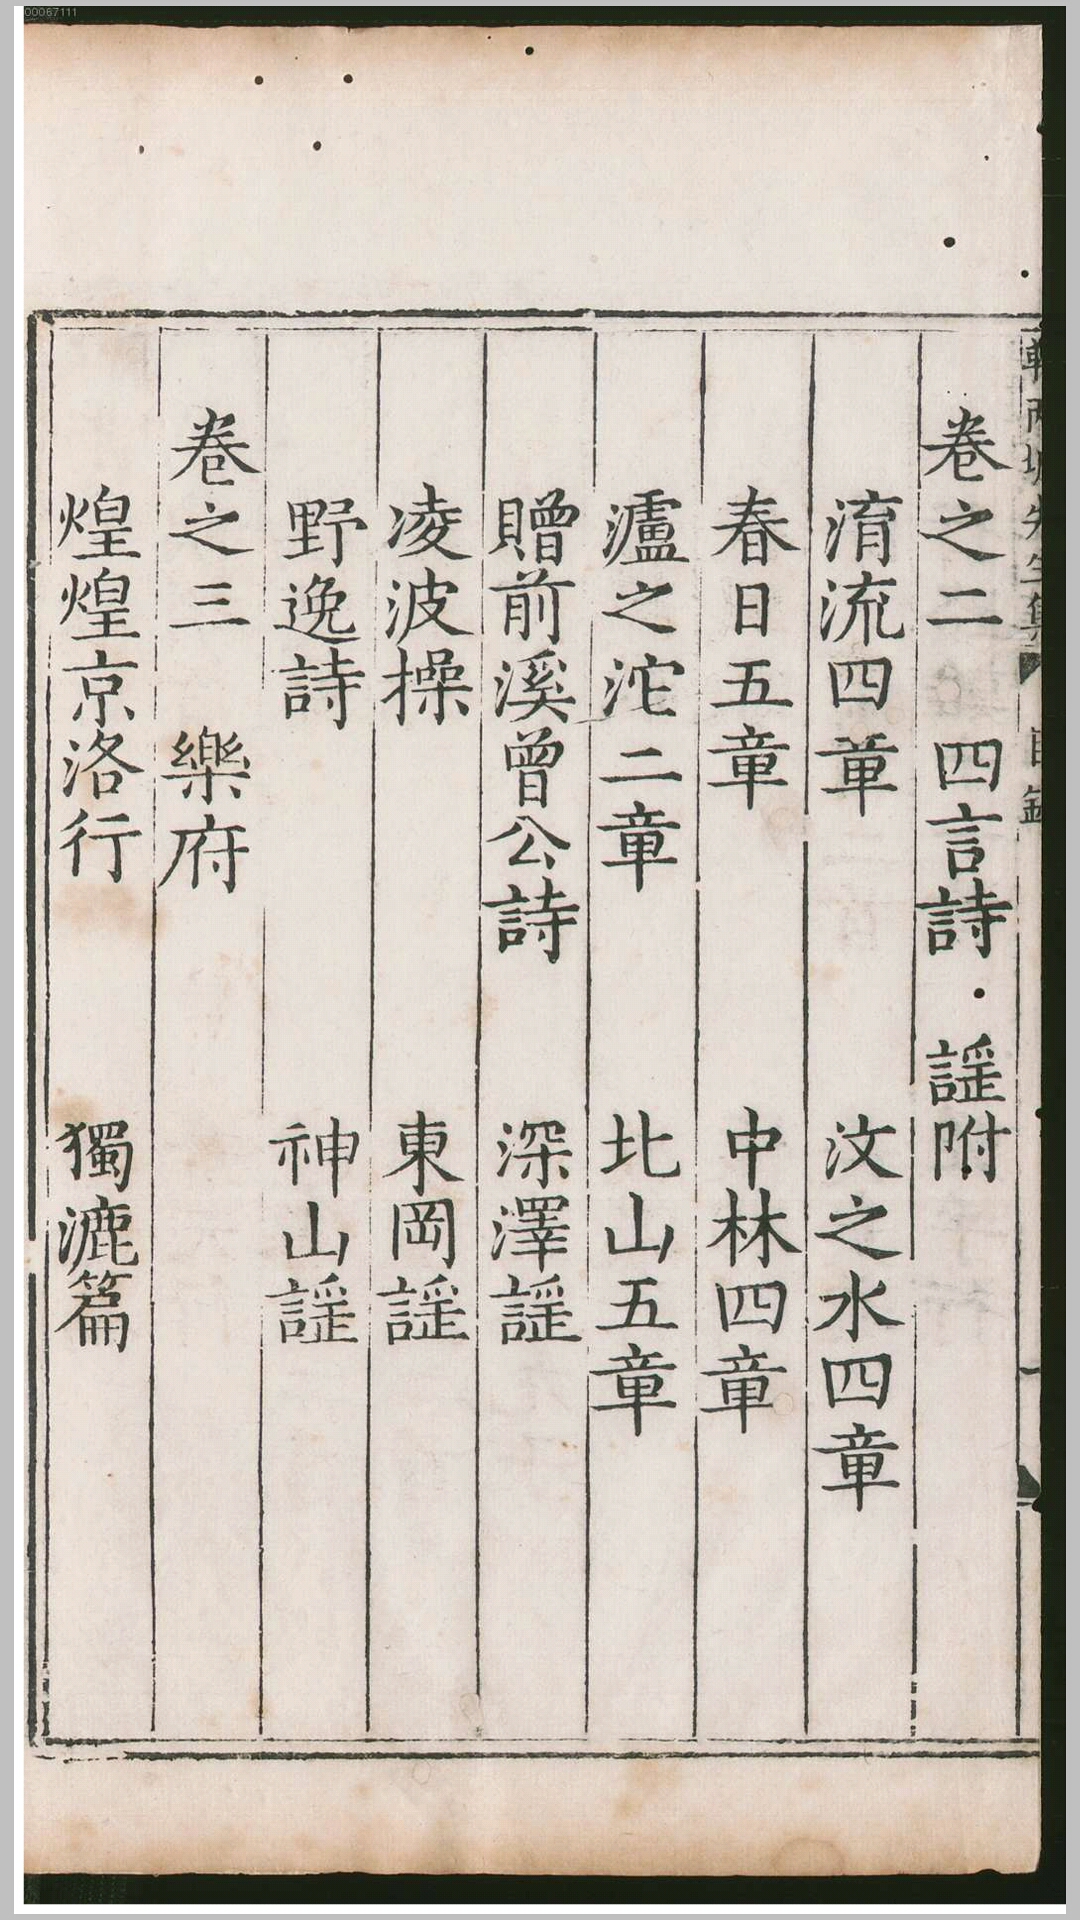 00067111
卷之二　四言詩　謡附
淯流四章　汶之水四章
春日五章　中林四章
瀘之沱二章　北山五章
贈前溪曾公詩　深澤謡
凌波操　東岡謡
野逸詩　神山謡
卷之三　樂府
煌煌京洛行　獨漉篇